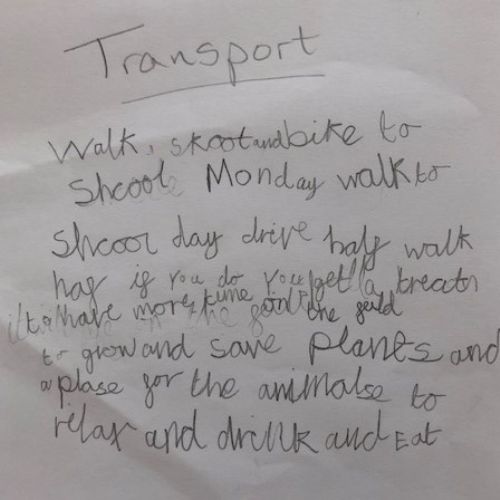 Transport
Walk, skoot and bike to
Shcool Monday walk to
Shcool day drive half walk
haf if you do you get a treat
to have more time in the feild
to grow and save plants and
a plase for the animalse to
relax and drink and Eat